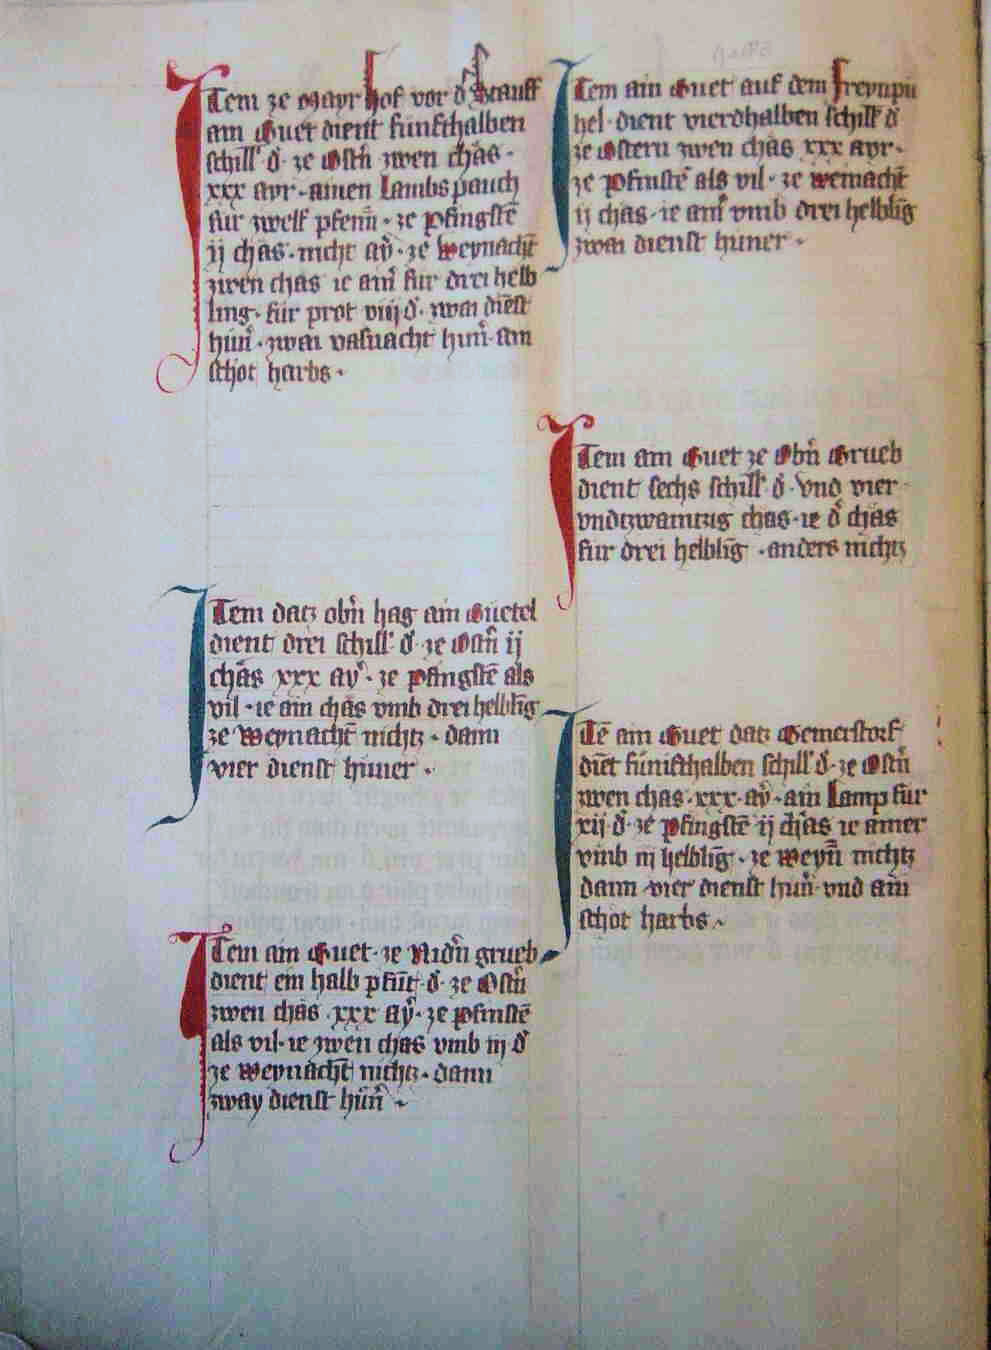 Item ze Mayr hof vor dˀ Strauff
ain Guet dient funfthalben
schillˀ dˀ · ze Ostnˀ zwen chäs ·
xxx ayr · ainen Lambspauch
fur zwelf pfenn̄ · ze pfingstē
ij chäs · nicht aÿˀ · ze Weynachtˀ
zwen chäs ie ainˀ fur drei helb
ling · fur prot viij dˀ · zwai diēst
hünˀ · zwai vasnacht hünˀ · ain
schot harbs ·
Item datz obnˀ hag ain Güetel
dient drei schillˀ dˀ · ze Ostnˀ ij
chäs xxx aÿˀ · ze pfingstē als
vil · ie ain chäs vmb drei helblīg
ze Weynachtˀ nichtz · dann
vier dienst hüner ·
Item ain Guet · ze Nidnˀ grueb
dient ein halb pfūt · dˀ · ze Ostnˀ
zwen chäs · xxx aÿˀ · ze pfinstē
als vil · ie zwen chäs vmb iij dˀ
ze weynachtˀ nichtz · dann
zway dienst hünˀ
Item ain Guet auf dem freynpü
hel · dient vierdhalben schillˀ dˀ
ze Ostern zwen chäs xxx ayr ·
ze Pfinstē als vil · ze weinachtˀ
ij chäs · ie ainˀ vmb drei helblīg
zwai dienst hüner ·
Item ain Guet ze Obnˀ Grueb
dient sechs schillˀ dˀ · vnd vier
vndtzwaintzig chäs · ie dˀ chäs
für drei helblīg · anders nichtz
Itē ain Guet datz Gemerstorf
diēt fünfthalben schillˀ dˀ · ze Ostnˀ
zwen chäs · xxx · aÿˀ · ain Lamp fur
xij dˀ · ze Pfingstē ij chäs ie ainer
vmb iij helblīg · ze weynˀ nichtz
dann vier dienst hünˀ vnd ain
schot harbs